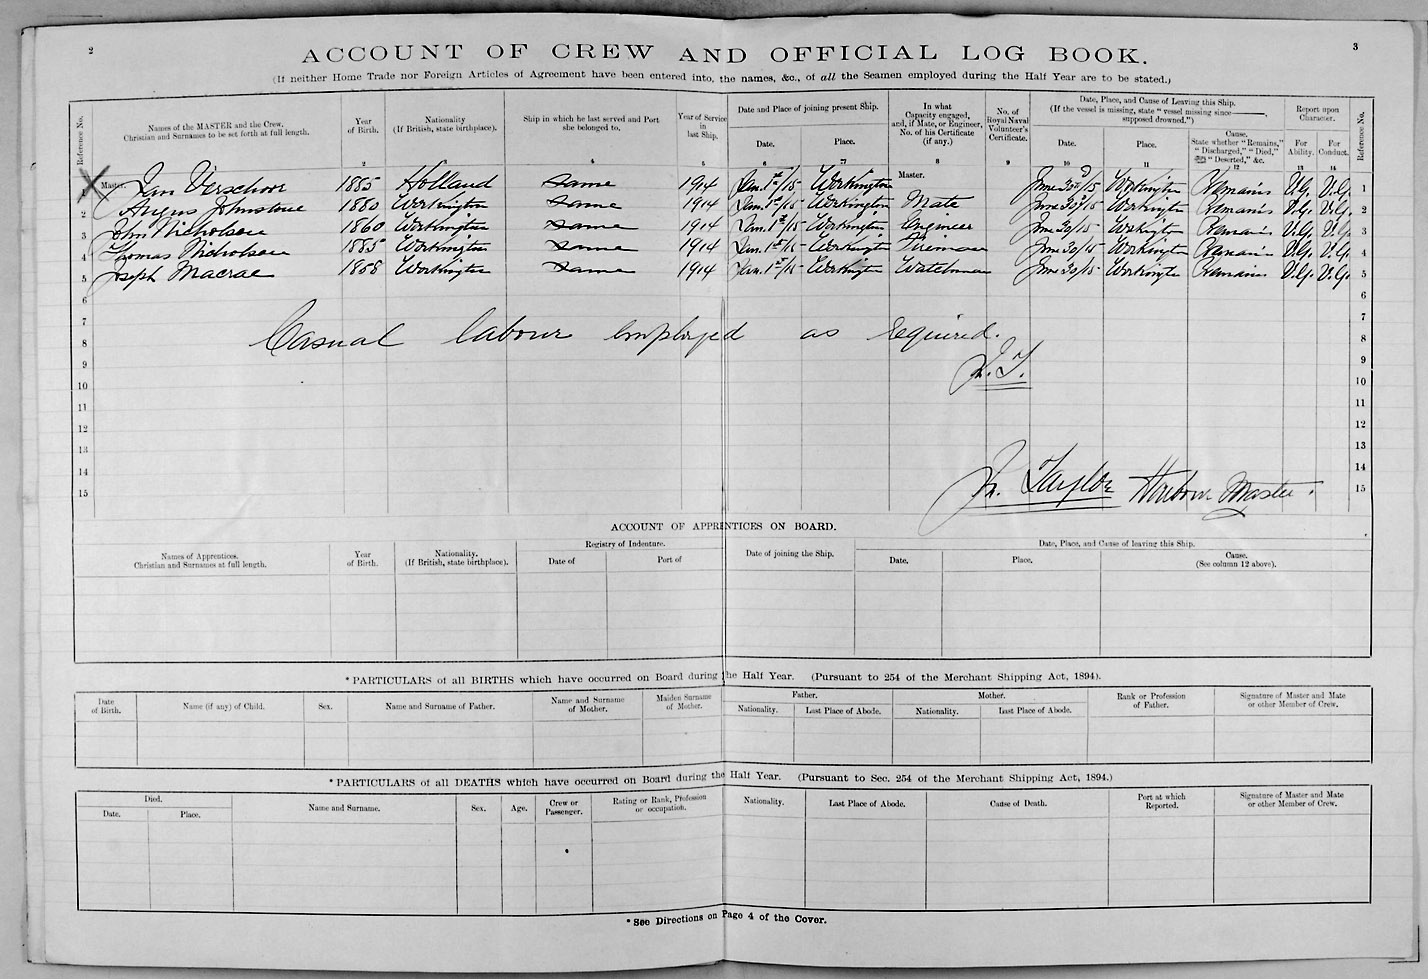 2
3
ACCOUNT OF CREW AND OFFICIAL LOG BOOK.
(If neither Home Trade nor Foreign Articles of Agreement have been entered into, the names, &c., of all the Seamen employed during the Half Year are to be stated.)
Reference No. Names of the MASTER and the Crew, Christian and Surnames to be set forth at full length. Year of Birth. Nationality (If British, state birthplace). Ship in which he last served and Port she belonged to. Year of Service in last Ship. Date and Place of joining present Ship. Date. Place. In what Capacity engaged, and, if Mate, or Engineer, No. of his Certificate (if any.) No. of Royal Naval Volunteer's Certificate. Date, Place, and Cause of Leaving this Ship. (If the vessel is missing, state "vessel missing since ———, supposed drowned.") Date. Place. Cause. State whether "Remains," "Discharged," "Died," "Deserted," &c. Report upon Character. For Ability. For Conduct. Reference No.
2 4 5 6 7 8 9 10 11 12 13 14
1 Master. Jan Verschoor 1885 Holland Same 1914 Jan. 1st/15 Workington Master. June 30th/15 Workington Remains V.G. V.G. 1
2 Angus Johnstone 1880 Workington Same 1914 Jan. 1st/15 Workington Mate June 30/15 Workington Remains V.G. V.G. 2
3 John Nicholson 1860 Workington Same 1914 Jan. 1st/15 Workington Engineer June 30/15 Workington Remains V.G. V.G. 3
4 Thomas Nicholson 1885 Workington Same 1914 Jan. 1st/15 Workington Fireman June 30/15 Workington Remains V.G. V.G. 4
5 Joseph Macrae 1858 Workington Same 1914 Jan. 1st/15 Workington Watchman June 30/15 Workington Remains V.G. V.G. 5
6 6
7 7
8 Casual labour employed as required. 8
9 9
J. T.
10 10
11 11
12 12
13 13
14 14
15 Taylor Harbour Master. 15
ACCOUNT OF APPRENTICES ON BOARD.
Names of Apprentices. Christian and Surnames at full length. Year of Birth. Nationality. (If British, state birthplace). Registry of Indenture. Date of Port of Date of joining the Ship. Date, Place, and Cause of leaving this Ship. Date. Place. Cause. (See column 12 above).
*PARTICULARS of all BIRTHS which have occurred on Board during the Half Year. (Pursuant to 254 of the Merchant Shipping Act, 1894).
Date of Birth. Name (if any) of Child. Sex. Name and Surname of Father. Name and Surname of Mother. Maiden Surname of Mother. Father. Nationality. Last Place of Abode. Mother. Nationality. Last Place of Abode. Rank or Profession of Father. Signature of Master and Mate or other Member of Crew.
*PARTICULARS of all DEATHS which have occurred on Board during the Half Year. (Pursuant to Sec. 254 of the Merchant Shipping Act, 1894.)
Died. Date. Place. Name and Surname. Sex. Age. Crew or Passenger. Rating or Rank, Profession or occupation. Nationality. Last Place of Abode. Cause of Death. Port at which Reported. Signature of Master and Mate or other Member of Crew.
*See Directions on Page 4 of the Cover.